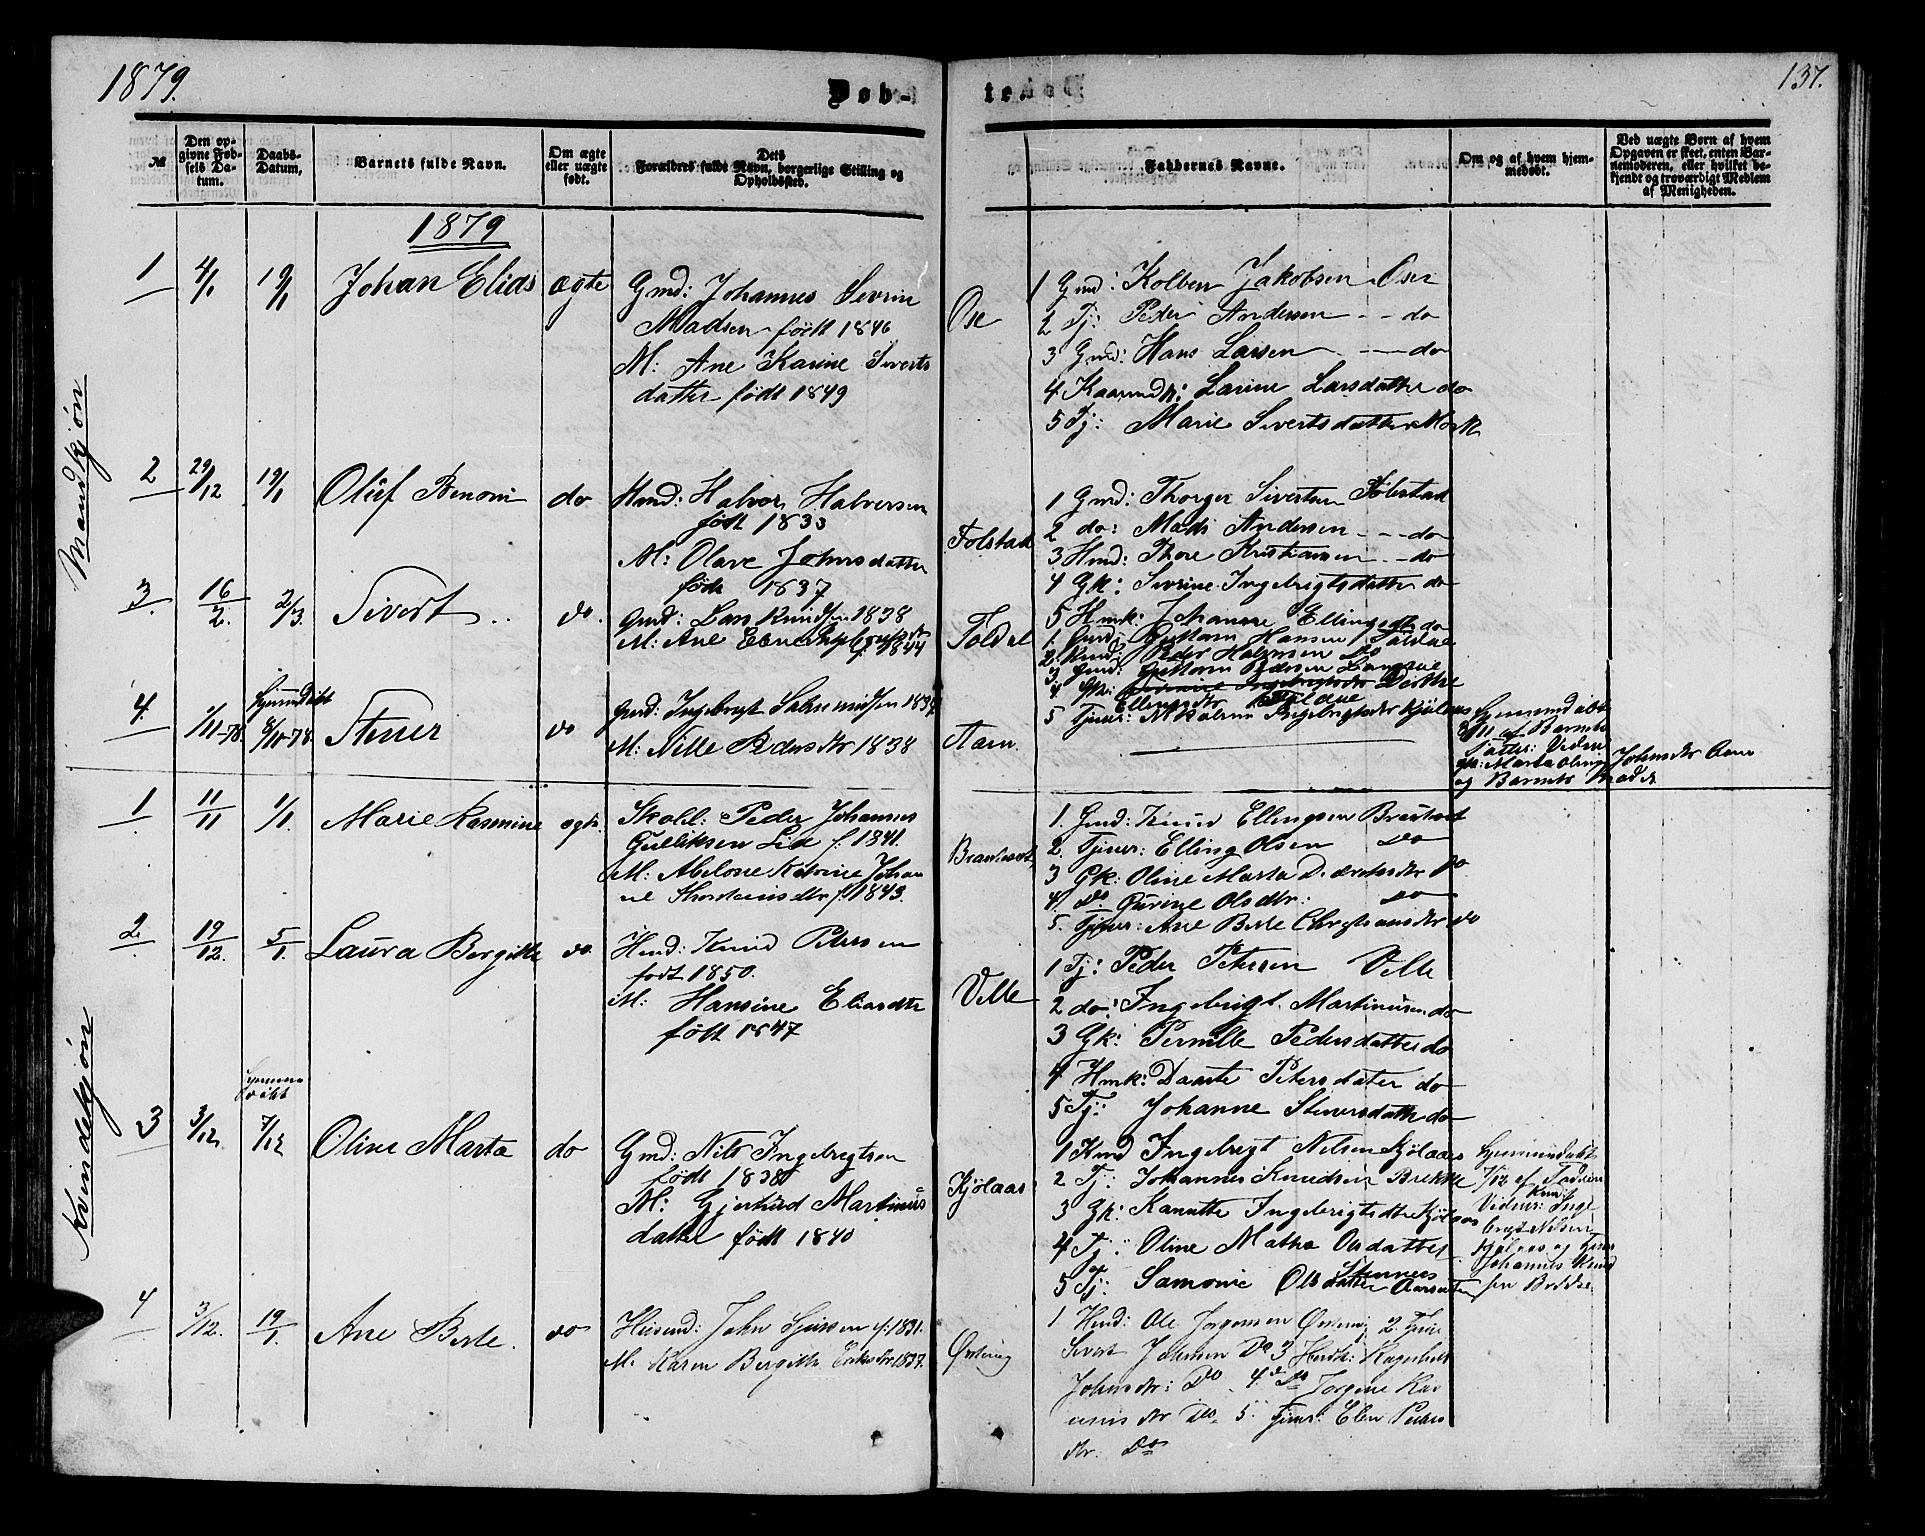 1879.
Døb-
137.
№
Den opgivne Fødsels Datum.
Daabs-Datum,
Barnets fulde Navn.
Om ægte eller uægte født.
Dets Forældres fulde Navn, borgerlige Stilling og Opholdssted.
Faddernes Navne.
Om og af hvem hjemmedøbt.
Ved uægte Børn af hvem Opgaven er skeet, enten Barnemoderen, eller hvilket bekjendt og troværdigt Medlem af Menigheden.
1879
Mandkjøn
1
4/1
19/1
Johan Elias
ægte
Gmd: Johannes Sevrin
Madsen født 1846
M: Ane Karine Siverts
datter født 1849
Ose
1 Gmd: Kolben Jakobsen Ose
2 Tj: Peder Andersen do
3 Gmd: Hans Larsen do
4 Larine Larsdatter do
5 Tj: Marie Sivertsdatter Mork
2
29/12
19/1
Oluf Benoni
do
Hmd: Halvor Halvorsen
født 1833
M: Olave Johnsdatter
født 1837
Folstad
1 Gmd: Thorger Sivertsen Folestad
2 do: Mads Andersen do
3 Hmd: Thore Kristiansen do
4 Gk: Sivrine Ingebrigtsdatter do
5 Hmk: Johanne Ellingsdtr do
3.
16/2.
2/3.
Sivert
do.
Gmd: Lars Knudsen 1838
M: Ane
1844
1. Gmd: Hansen
2. Peder Halvorsen Do
3. Gmd:
4. Gk: Dorthe
Ellingsdtr
5 Tjener: Ingebrigtsdtr Kjölaas
4.
1/11-78
Hjemmedøbt
8/11-78.
Stener
do
Gmd: Ingebrigt
M: Nille Pedersdtr 1838
Aarn
Hjemmedøbt
8/11 af Barnets
Fader: Vidne
Johnsdtr Aarn
og Barnets Moder
Kvindekjøn
1
11/11
1/1
Marie Rasmine
ægte
Skoll: Peder Johannes
Gulliksen Lid f. 1841.
M: Abelone Katrine Johan
ne Thorsteinsdtr f. 1843.
1. Gmd: Knud Ellingsen
2. Tjener: Elling Olsen Do
3 Gk: Oline Marta do
4. Do Gurine Olsdtr: Do
5. Tjener: Ane Berte Christiansdtr do
2.
19/12.
5/1.
Laura Bergitte
do.
Hmd: Knud Petersen
født 1850.
M: Hansine Eliasdtr
født 1847
Velle
1 Tj: Peder Petersen Velle
2 do: Ingebrigt Martinusen do
3 Gk: Pernille Pedersdatter do
4 Hmk: Daarte Petersdater do
5 Tj: Johanne Steversdattr do
3
3/12.
Hjemme
døbt
7/12
Oline Marta
do
Gmd: Nils Ingebrigtsen
født 1838
M: Gjertrud Martinus
datter født 1840
Kjölaas
1 Kmd Ingebrigt Nelsen Kjölaas
2 Tj: Johannes Knudsen Brekke
3 Gk: Kanutte Ingebrigtsdtr Kjölaas
4 Tj: Oline Mathea Olsdatter
Stennes
5 Tj: Samonie Olsdatter
Hjemmedøbt
7/12 af Faderen
Vidner: Kmd Inge
brigt Nelsen
Kjölaas og Tjener
Johannes Knud
sen Brekke.
4
3/12.
19/1.
Ane Berte.
do
Huusmd: John f. 1831.
M. Karen Bergitte Eriksdtr 1837.
1 Hmd: Ole Jorgensen 2. Tjener
Sivert Johnsen Do 3 Hmdk:
Johnsdtr: Do. 4. Do Jorgine
dtr Do. 5. Tjener: Elen Peders
dtr. Do